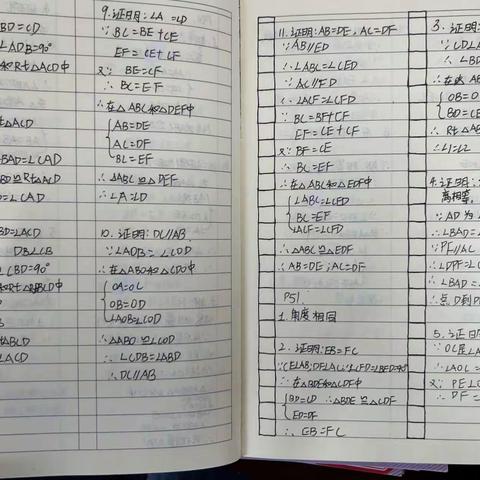 BD=CD
∠ADB=90°
和Rt△ACD中
△ACD
BAD=∠CAD
BD≌Rt△ACD
=∠CAD
BD=∠ACD
DB⊥CB
∠CBD=90°
和Rt△BCD中
△BCD
∠ACD
9.证明:∠A=∠D
∵BC=BE+CE
EF=CE+CF
又∵BE=CF
∴BC=EF
∴在△ABC和△DEF中
AB=DE
AC=DF
BC=EF
∴△ABC≌△DEF
∴∠A=∠D
10.证明:DC//AB
∵∠AOB=∠COD
∴在△ABO和△CDO中
OA=OC
OB=OD
∠AOB=∠COD
∴△ABO≌△COD
∴∠CDB=∠ABD
∴DC//AB
11.证明:AB=DE,AC=DF
∵AB//ED
∴∠ABC=∠CED
∵AC//FD
∴∠ACF=∠CFD
∵BC=BF+CF
EF=CE+CF
又∵BF=CE
∴BC=EF
∴在△ABC和△EDF中
∠ABC=∠CED
BC=EF
∠ACF=∠CFD
∴△ABC≌△EDF
∴AB=DE;AC=DF
P51.
1.角度相同
2.证明:EB=FC
∵CE⊥AB,DF⊥AC∴∠CFD=∠BED=90°
∴在△BDE和△CDF中
BD=CD ∴△BDE≌△CDF
ED=DF
∴EB=FC
3.证明:
∵CD⊥A
∴∠BD
∴在△
OB=O
BD=CE
∴Rt△
∴∠1=∠2
4.证明:
高相等.
∵AD为
∴∠BAD=
∵PF//AC
∴∠DPF=∠C
∴∠BAD=
∴点D到D
5.证明
∵OC是∠A
∴∠AOC=
又∵PE⊥O
∴DF=